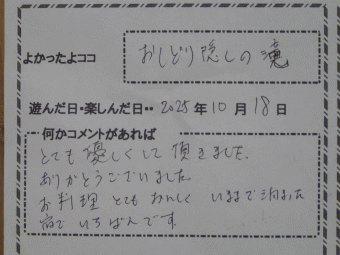 よかったよココ
おしどり隠しの滝
遊んだ日・楽しんだ日・・ 2025年10月18日
何かコメントがあれば
とても優しくして頂きました。
ありがとうございました。
お料理 とてもおいしく いままで泊まった
宿で いちばんです。